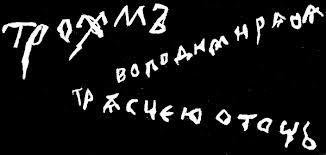 ТРОХМЪ
ВОЛОДИМИРАОА
ТРѦСЧЕЮ ОТОЦЬ